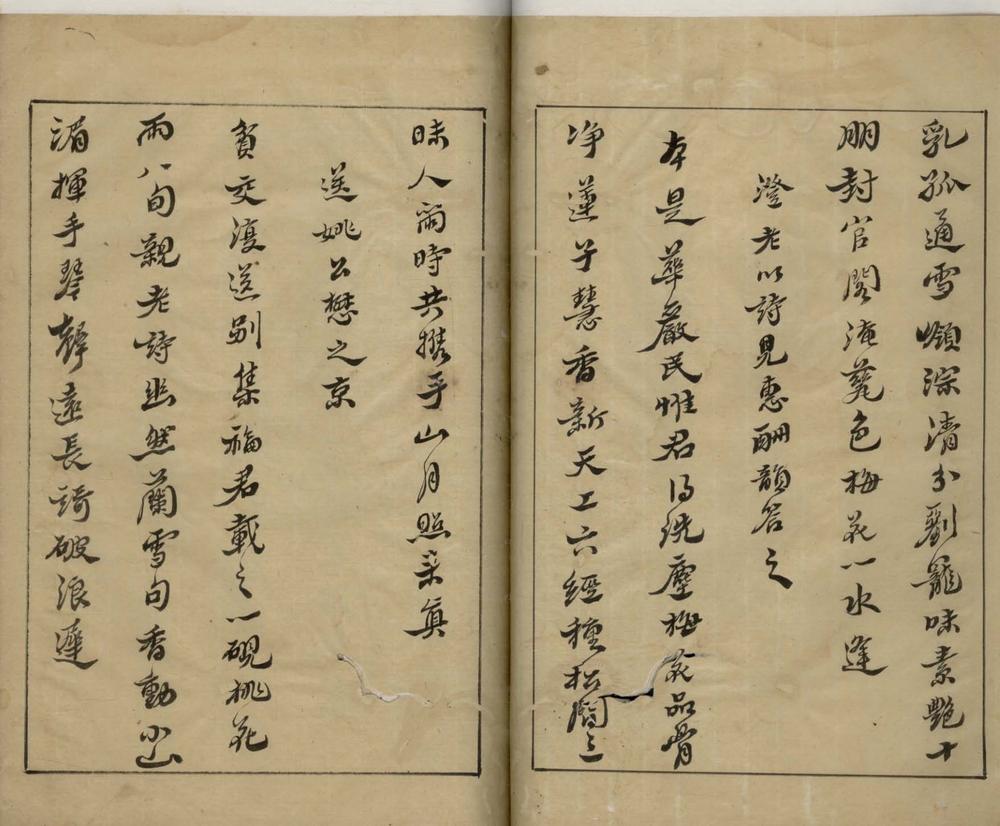 乳孤通雪嶺深清分劚籠味素艷十
朋封官閣淹蕤色梅花一水逢
澄老以詩見惠酬韻答之
本是華嚴民惟君得洗塵梅花品骨
净蓮子慧香新天工六經種松間三
昧人爾時共攜手山月照来真
送姚公懋之京
貧交復送别集福君載之一硯桃花
雨八句親老詩幽然蘭雪句香動小山
湄揮手琴聲遠長歌破浪遲